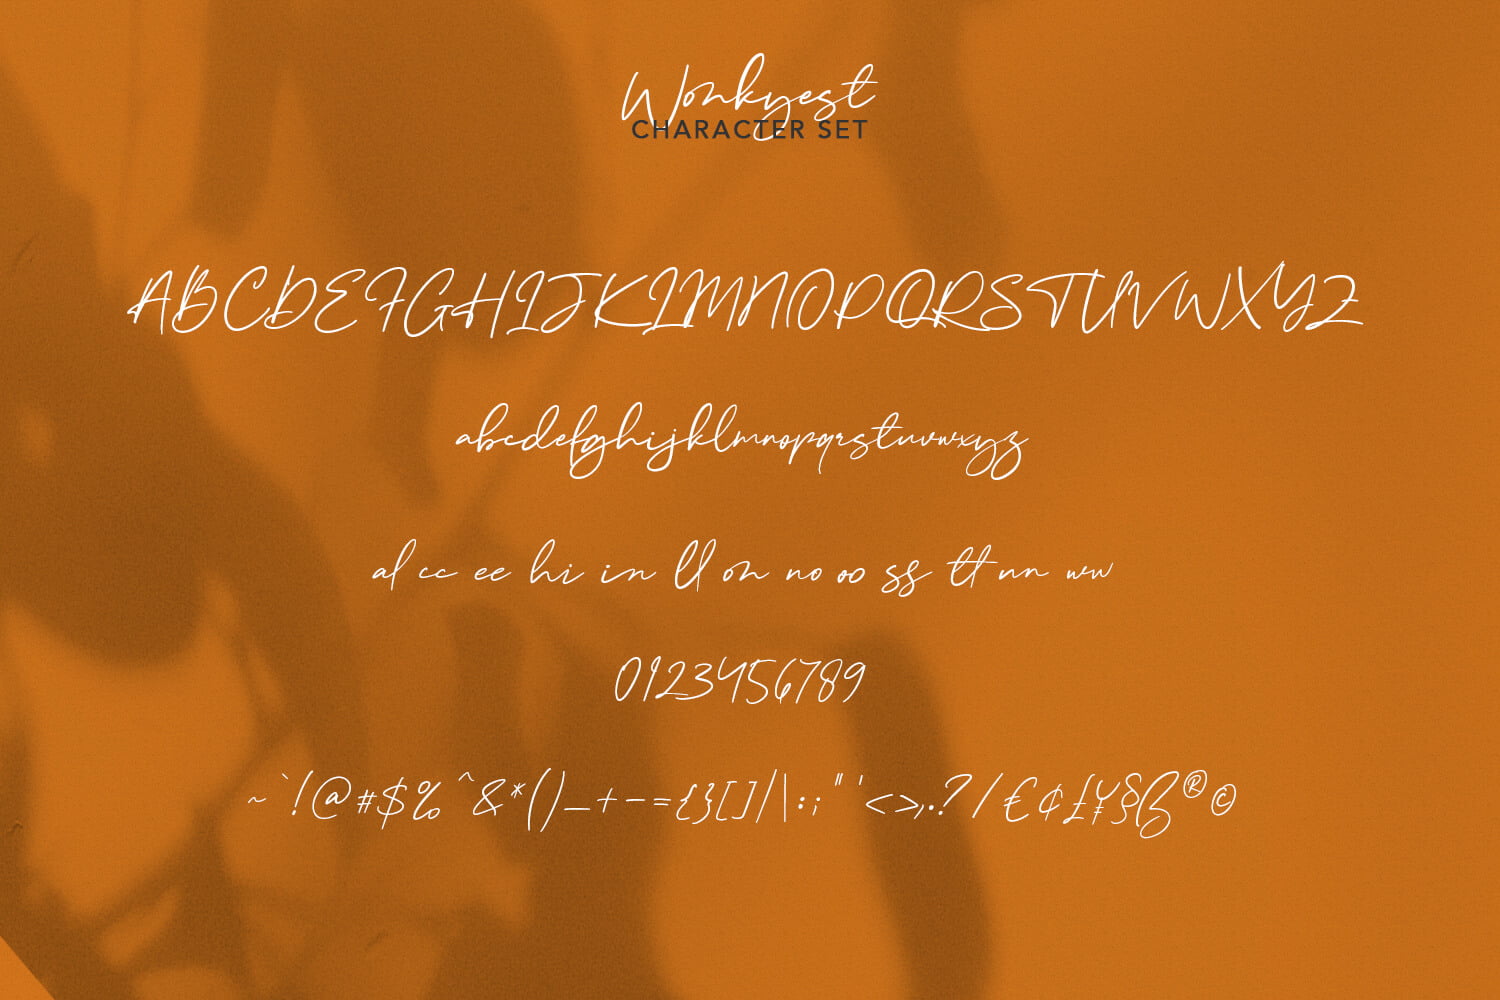 Wonkyest
CHARACTER SET
ABCDEFGHIJKLMNOPQRSTUVWXYZ
abcdefghijklmnopqrstuvwxyz
al cc ee hi in ll on no oo ss tt nn ww
0123456789
~`!@#$%^&*()_+-={}[]/|:;"'<>,.?/€¢£¥§ß®©